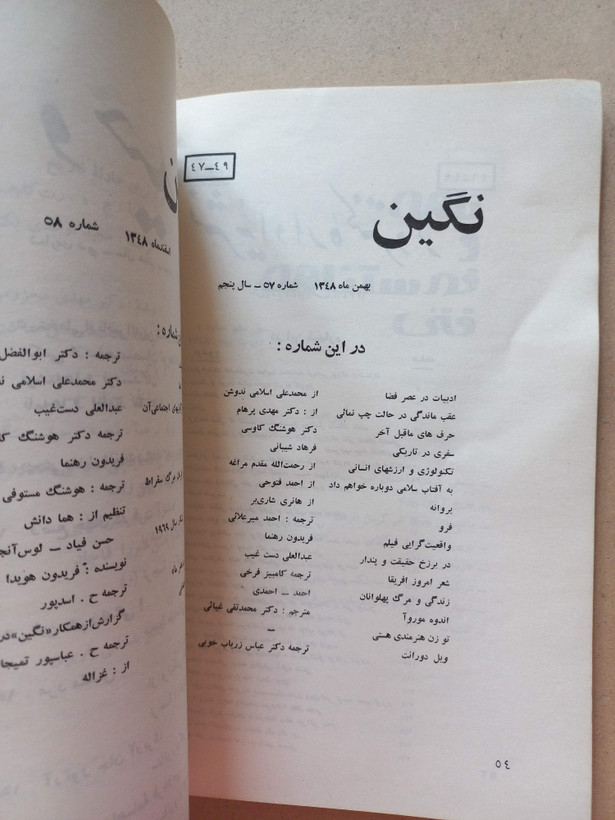 ۴۷-۴۹
نگین
بهمن ماه ۱۳۴۸ شماره ۵۷ ـ سال پنجم
در این شماره :
ادبیات در عصر فضا از محمدعلی اسلامی ندوشن
عقب ماندگی در حالت چپ نمائی از : دکتر مهدی پرهام
حرف های ماقبل آخر دکتر هوشنگ کاوسی
سفری در تاریکی فرهاد شیبانی
تکنولوژی و ارزشهای انسانی از رحمت‌الله مقدم مراغه
به آفتاب سلامی دوباره خواهم داد از احمد فتوحی
پروانه از هانری شاری‌یر
فرو ترجمه : احمد میرعلائی
واقعیت‌گرایی فیلم فریدون رهنما
در برزخ حقیقت و پندار عبدالعلی دست غیب
شعر امروز افریقا ترجمه کامبیز فرخی
زندگی و مرگ پهلوانان احمد ــ احمدی
اندوه موروآ مترجم : دکتر محمدتقی غیاثی
تو زن هنرمندی هستی ــ
ویل دورانت ترجمه دکتر عباس زریاب خویی
۵٤
اسفندماه ۱۳۴۸ شماره ۵۸
شماره :
ترجمه : دکتر ابوالفضل
دکتر محمدعلی اسلامی
آن اجتماعی عبدالعلی دست‌غیب
ترجمه دکتر هوشنگ
فریدون رهنما
مرگ سقراط ترجمه : هوشنگ مستوفی
تنظیم از : هما دانش
سال ۱۹۶۹ حسن فیاد ــ لوس‌آنجلس
نویسنده : فریدون هویدا
ترجمه ح . اسدپور
گزارش‌ازهمکار«نگین»در
ترجمه ح . عباسپور تمیجانی
از : غزاله